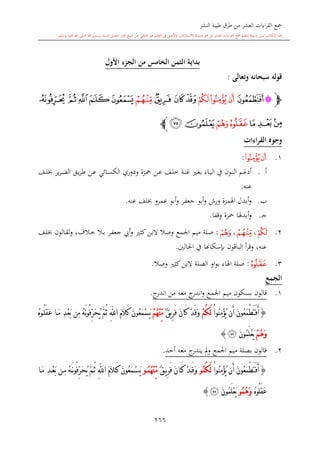 جمع القراءات العشر من طرق طيبة النشر
بداية الثمن الخامس من الجزء الأول
قوله سبحانه وتعالى :
﴿ ۞ أَفَتَطْمَعُونَ أَن يُؤْمِنُوا۟ لَكُمْ وَقَدْ كَانَ فَرِيقٌ مِّنْهُمْ يَسْمَعُونَ كَلَـٰمَ ٱللَّهِ ثُمَّ يُحَرِّفُونَهُۥ
مِنۢ بَعْدِ مَا عَقَلُوهُ وَهُمْ يَعْلَمُونَ ٧٥ ﴾
وجوه القراءات
١. أَن يُؤْمِنُوا۟ :
أ . أدغم النون في الياء بغير غنة خلف عن حمزة ودوري الكسائي عن طريق الضرير بخلف
عنه.
ب. وأبدل الهمزة ورش وأبو جعفر وأبو عمرو بخلف عنه.
جـ. وأبدلها حمزة وقفا.
٢. لَكُمْ ، مِّنْهُمْ ، وَهُمْ : صلة ميم الجمع وصلا لابن كثير وأبي جعفر بلا خلاف، ولقالون بخلف
عنه، وقرأ الباقون بإسكانها في الحالين.
٣. عَقَلُوهُ : صلة الهاء بواو الصلة لابن كثير وصلا.
الجمع
١. قالون بسكون ميم الجمع واندرج معه من اندرج.
﴿ أَفَتَطْمَعُونَ أَن يُؤْمِنُوا لَكُمْ وَقَدْ كَانَ فَرِيقٌ مِّنْهُمْ يَسْمَعُونَ كَلَامَ اللَّهِ ثُمَّ يُحَرِّفُونَهُ مِن بَعْدِ مَا عَقَلُوهُ
وَهُمْ يَعْلَمُونَ ٧٥ ﴾
٢. قالون بصلة ميم الجمع ولم يندرج معه أحد.
﴿ أَفَتَطْمَعُونَ أَن يُؤْمِنُوا لَكُمُو وَقَدْ كَانَ فَرِيقٌ مِّنْهُمُو يَسْمَعُونَ كَلَامَ اللَّهِ ثُمَّ يُحَرِّفُونَهُ مِن بَعْدِ مَا
عَقَلُوهُ وَهُمُو يَعْلَمُونَ ٧٥ ﴾
٢٦٦